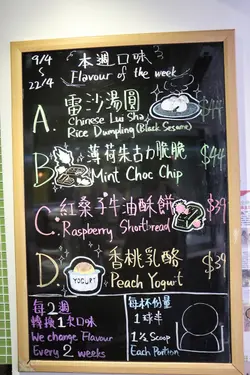 9/4
~
22/4
本週口味
Flavour of the week
A. 雷沙湯圓 $44
Chinese Lui Sha
Rice Dumpling (Black Sesame)
B. 薄荷朱古力脆脆 $44
Mint Choc Chip
C. 紅桑子牛油酥餅 $39
Raspberry Shortbread
D. 香桃乳酪 $39
YOGURT
Peach Yogurt
每2週
轉換1次口味
We change Flavour
Every 2 weeks
每杯份量
1球半
1½ Scoop
Each Portion